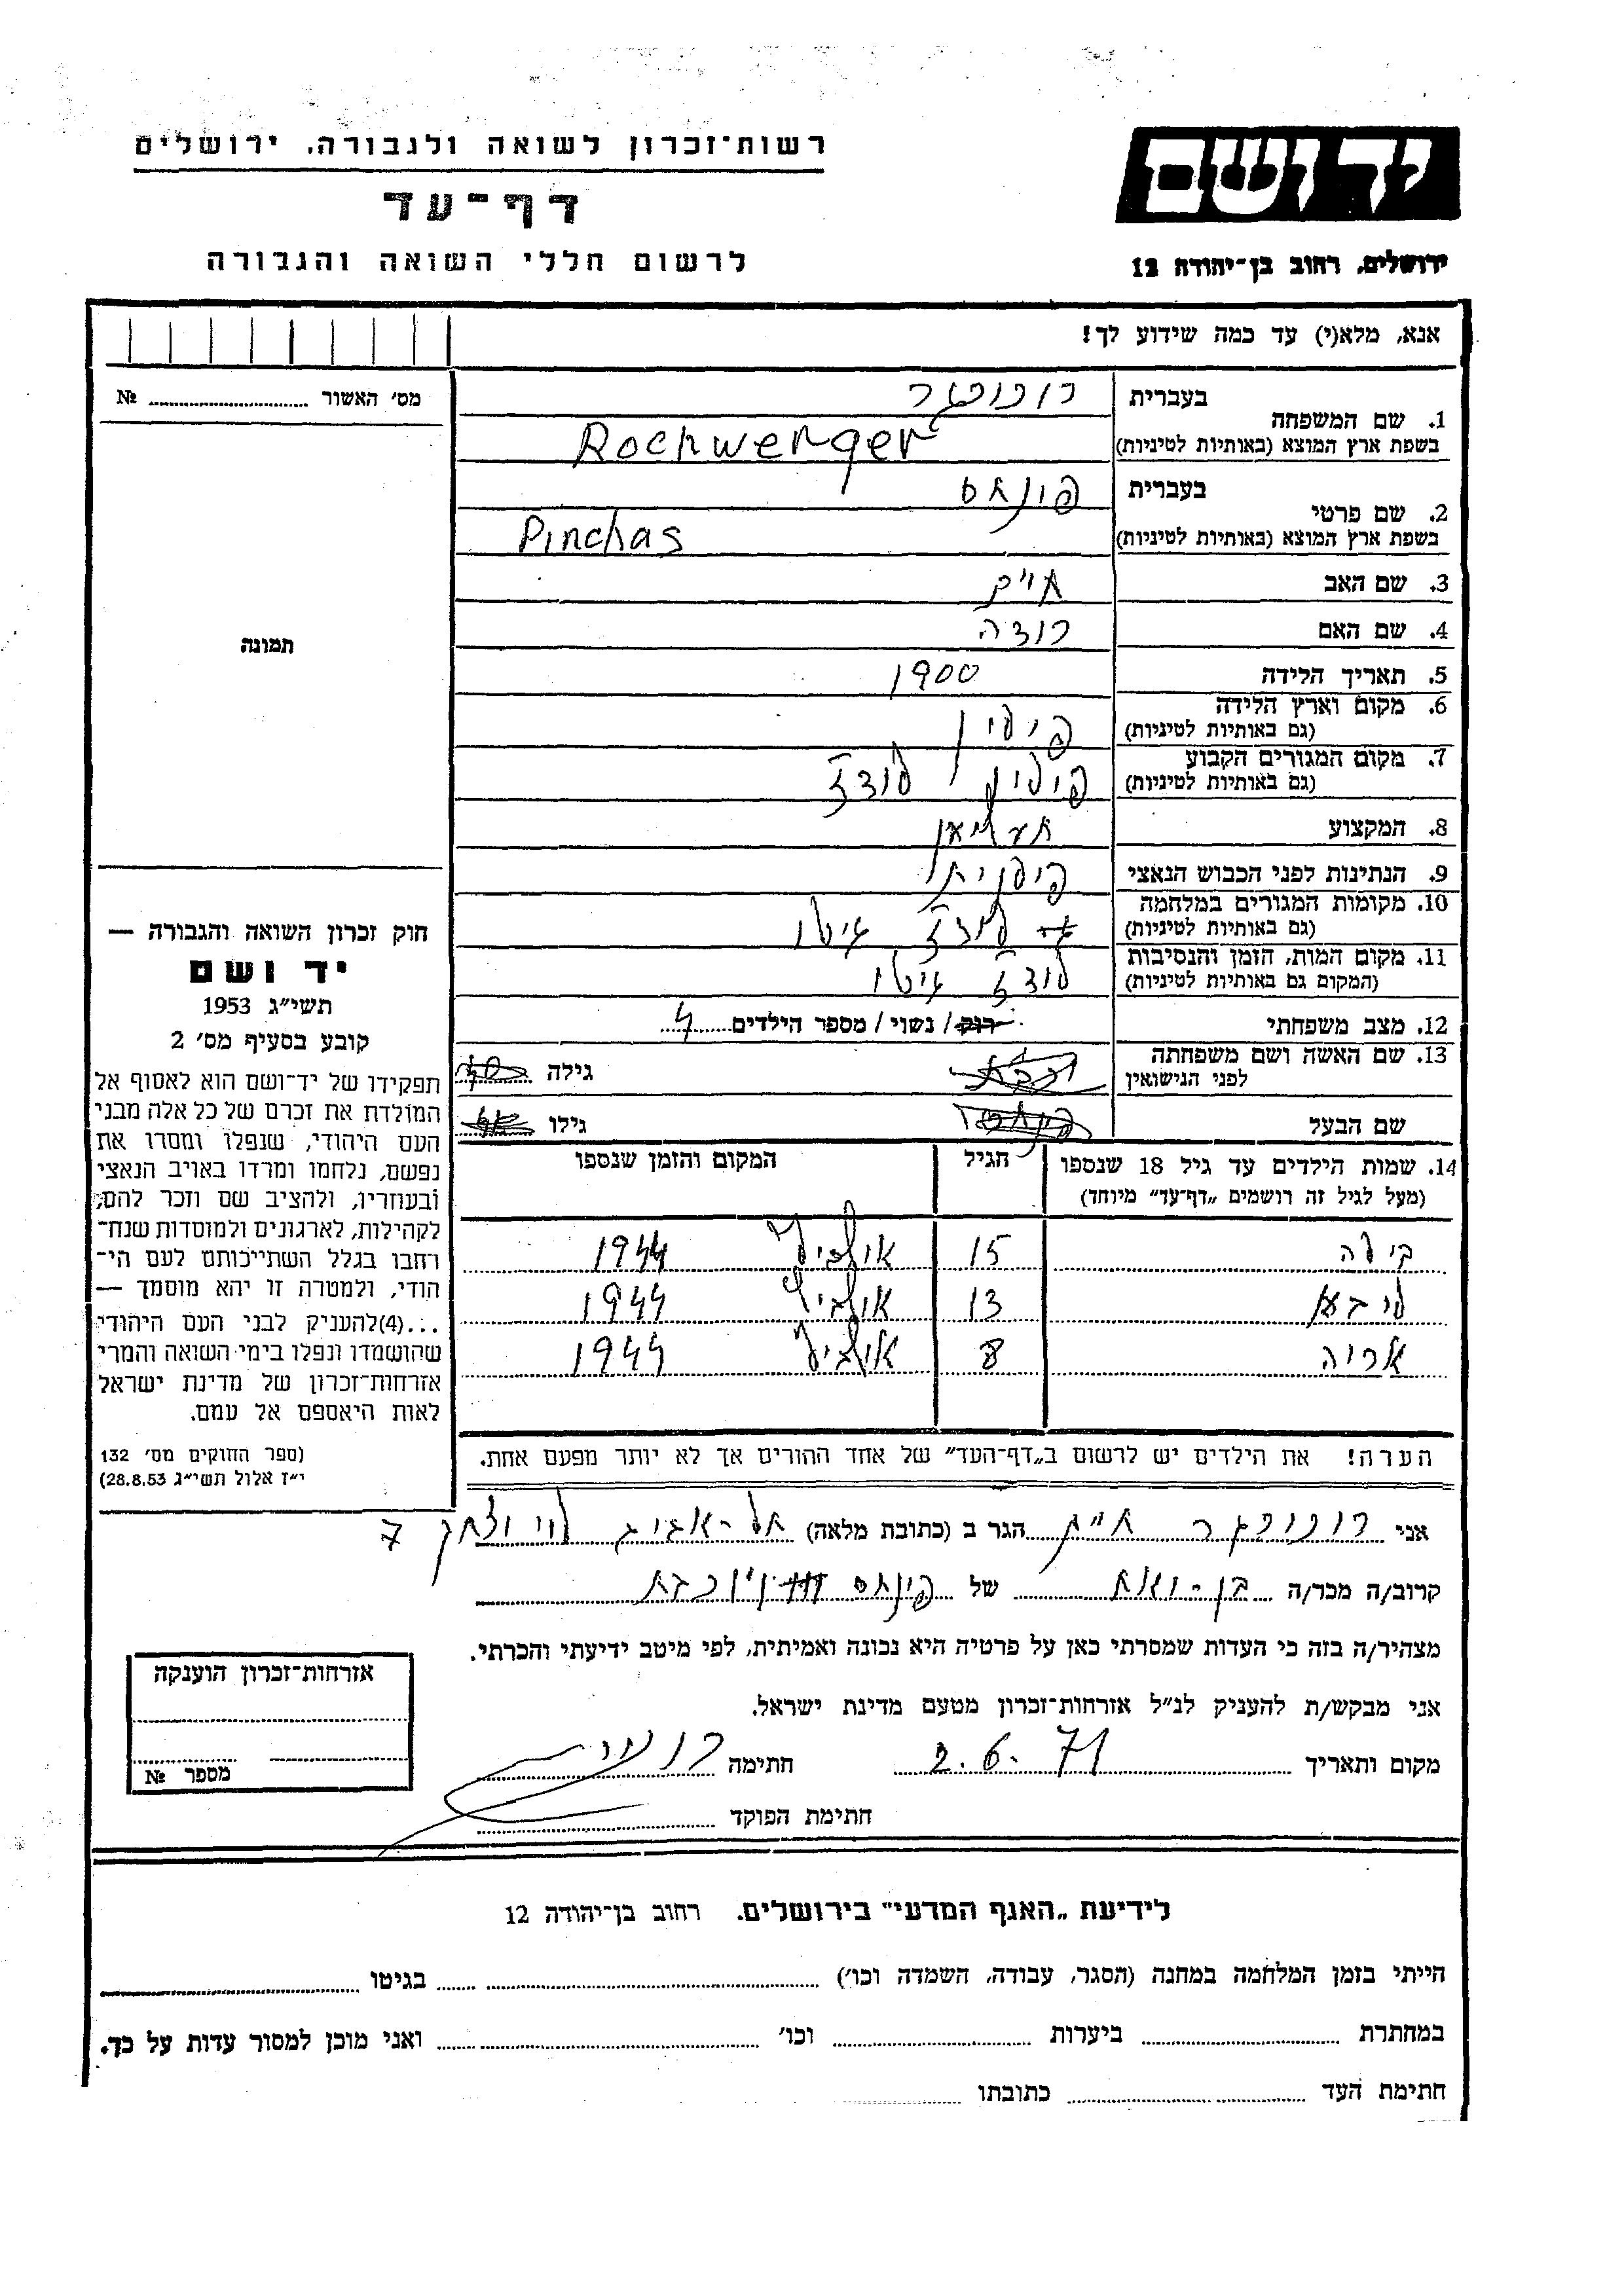 רשות־זכרון לשואה ולגבורה, ירושלים
דף־עד
לרשום חללי השואה והגבורה
יד ושם
ירושלים, רחוב בן־יהודה 12
אנא, מלא(י) עד כמה שידוע לך!
מס׳ האשור № 
תמונה
1. שם המשפחה
בעברית
בשפת ארץ המוצא (באותיות לטיניות) Rochwerger
2. שם פרטי
בעברית פינחס
בשפת ארץ המוצא (באותיות לטיניות) Pinchas
3. שם האב חיים
4. שם האם רוצה
5. תאריך הלידה 1900
6. מקום וארץ הלידה
(גם באותיות לטיניות) פולין
7. מקום המגורים הקבוע
(גם באותיות לטיניות) פולין לודז
8. המקצוע
9. הנתינות לפני הכבוש הנאצי פולנית
10. מקומות המגורים במלחמה
(גם באותיות לטיניות) לודז גיטו
11. מקום המות, הזמן והנסיבות
(המקום גם באותיות לטיניות) לודז גיטו
12. מצב משפחתי רוק / נשוי / מספר הילדים 4
13. שם האשה ושם משפחתה
לפני הנישואין גילה
שם הבעל גילו
14. שמות הילדים עד גיל 18 שנספו הגיל המקום והזמן שנספו
(מעל לגיל זה רושמים „דף־עד” מיוחד)
בילה 15 1944
13 1944
אריה 8 1944
הערה! את הילדים יש לרשום ב„דף־העד” של אחד ההורים אך לא יותר מפעם אחת.
חוק זכרון השואה והגבורה —
יד ושם
תשי״ג 1953
קובע בסעיף מס׳ 2
תפקידו של יד־ושם הוא לאסוף אל
המולדת את זכרם של כל אלה מבני
העם היהודי, שנפלו ומסרו את
נפשם, נלחמו ומרדו באויב הנאצי
ובעוזריו, ולהציב שם וזכר להם,
לקהילות, לארגונים ולמוסדות שנח־
רחבו בגלל השתייכותם לעם הי־
הודי, ולמטרה זו יהא מוסמך —
...(4)להעניק לבני העם היהודי
שהושמדו ונפלו בימי השואה והמרי
אזרחות־זכרון של מדינת ישראל
לאות היאספם אל עמם.
(ספר החוקים מס׳ 132
י״ז אלול תשי״ג 28.8.53)
אני חיים הגר ב (כתובת מלאה) תל-אביב לוי יצחק 7
קרוב/ה מכר/ה של פינחס
מצהיר/ה בזה כי העדות שמסרתי כאן על פרטיה היא נכונה ואמיתית, לפי מיטב ידיעתי והכרתי.
אני מבקש/ת להעניק לנ״ל אזרחות־זכרון מטעם מדינת ישראל.
מקום ותאריך 2.6.71 חתימה
חתימת הפוקד
אזרחות־זכרון הוענקה
מספר №
לידיעת „האגף המדעי” בירושלים. רחוב בן־יהודה 12
הייתי בזמן המלחמה במחנה (הסגר, עבודה, השמדה וכו׳) בגיטו
במחתרת ביערות וכו׳ ואני מוכן למסור עדות על כך.
חתימת העד כתובתו